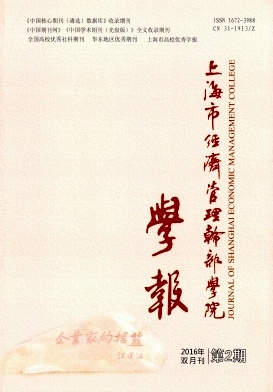 《中国核心期刊（遴选）数据库》收录期刊
《中国期刊网》《中国学术期刊（光盘版）》全文收录期刊
全国高校优秀社科期刊 华东地区优秀期刊 上海市高校优秀学报
ISSN 1672-3988
CN 31-1913/Z
上海市经济管理幹部學院
JOURNAL OF SHANGHAI ECONOMIC MANAGEMENT COLLEGE
學報
企業家的摇篮
2016年
双月刊
第2期